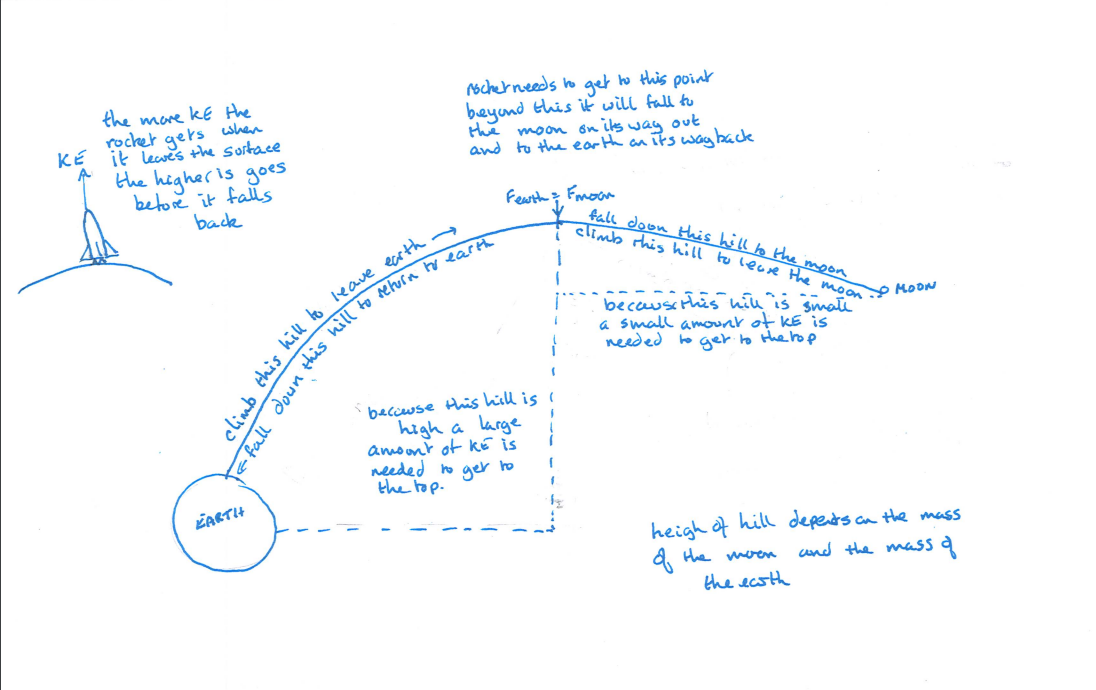 the more KE the
rocket gets when
it leaves the surface
the higher is goes
before it falls
back
KE
rocket needs to get to this point
beyond this it will fall to
the moon on its way out
and to the earth on its way back
Fearth = Fmoon
climb this hill to leave earth →
← fall down this hill to return to earth
fall down this hill to the moon
climb this hill to leave the moon
MOON
because this hill is small
a small amount of KE is
needed to get to the top
because this hill is
high a large
amount of KE is
needed to get to
the top.
EARTH
heigh of hill depends on the mass
of the moon and the mass of
the earth